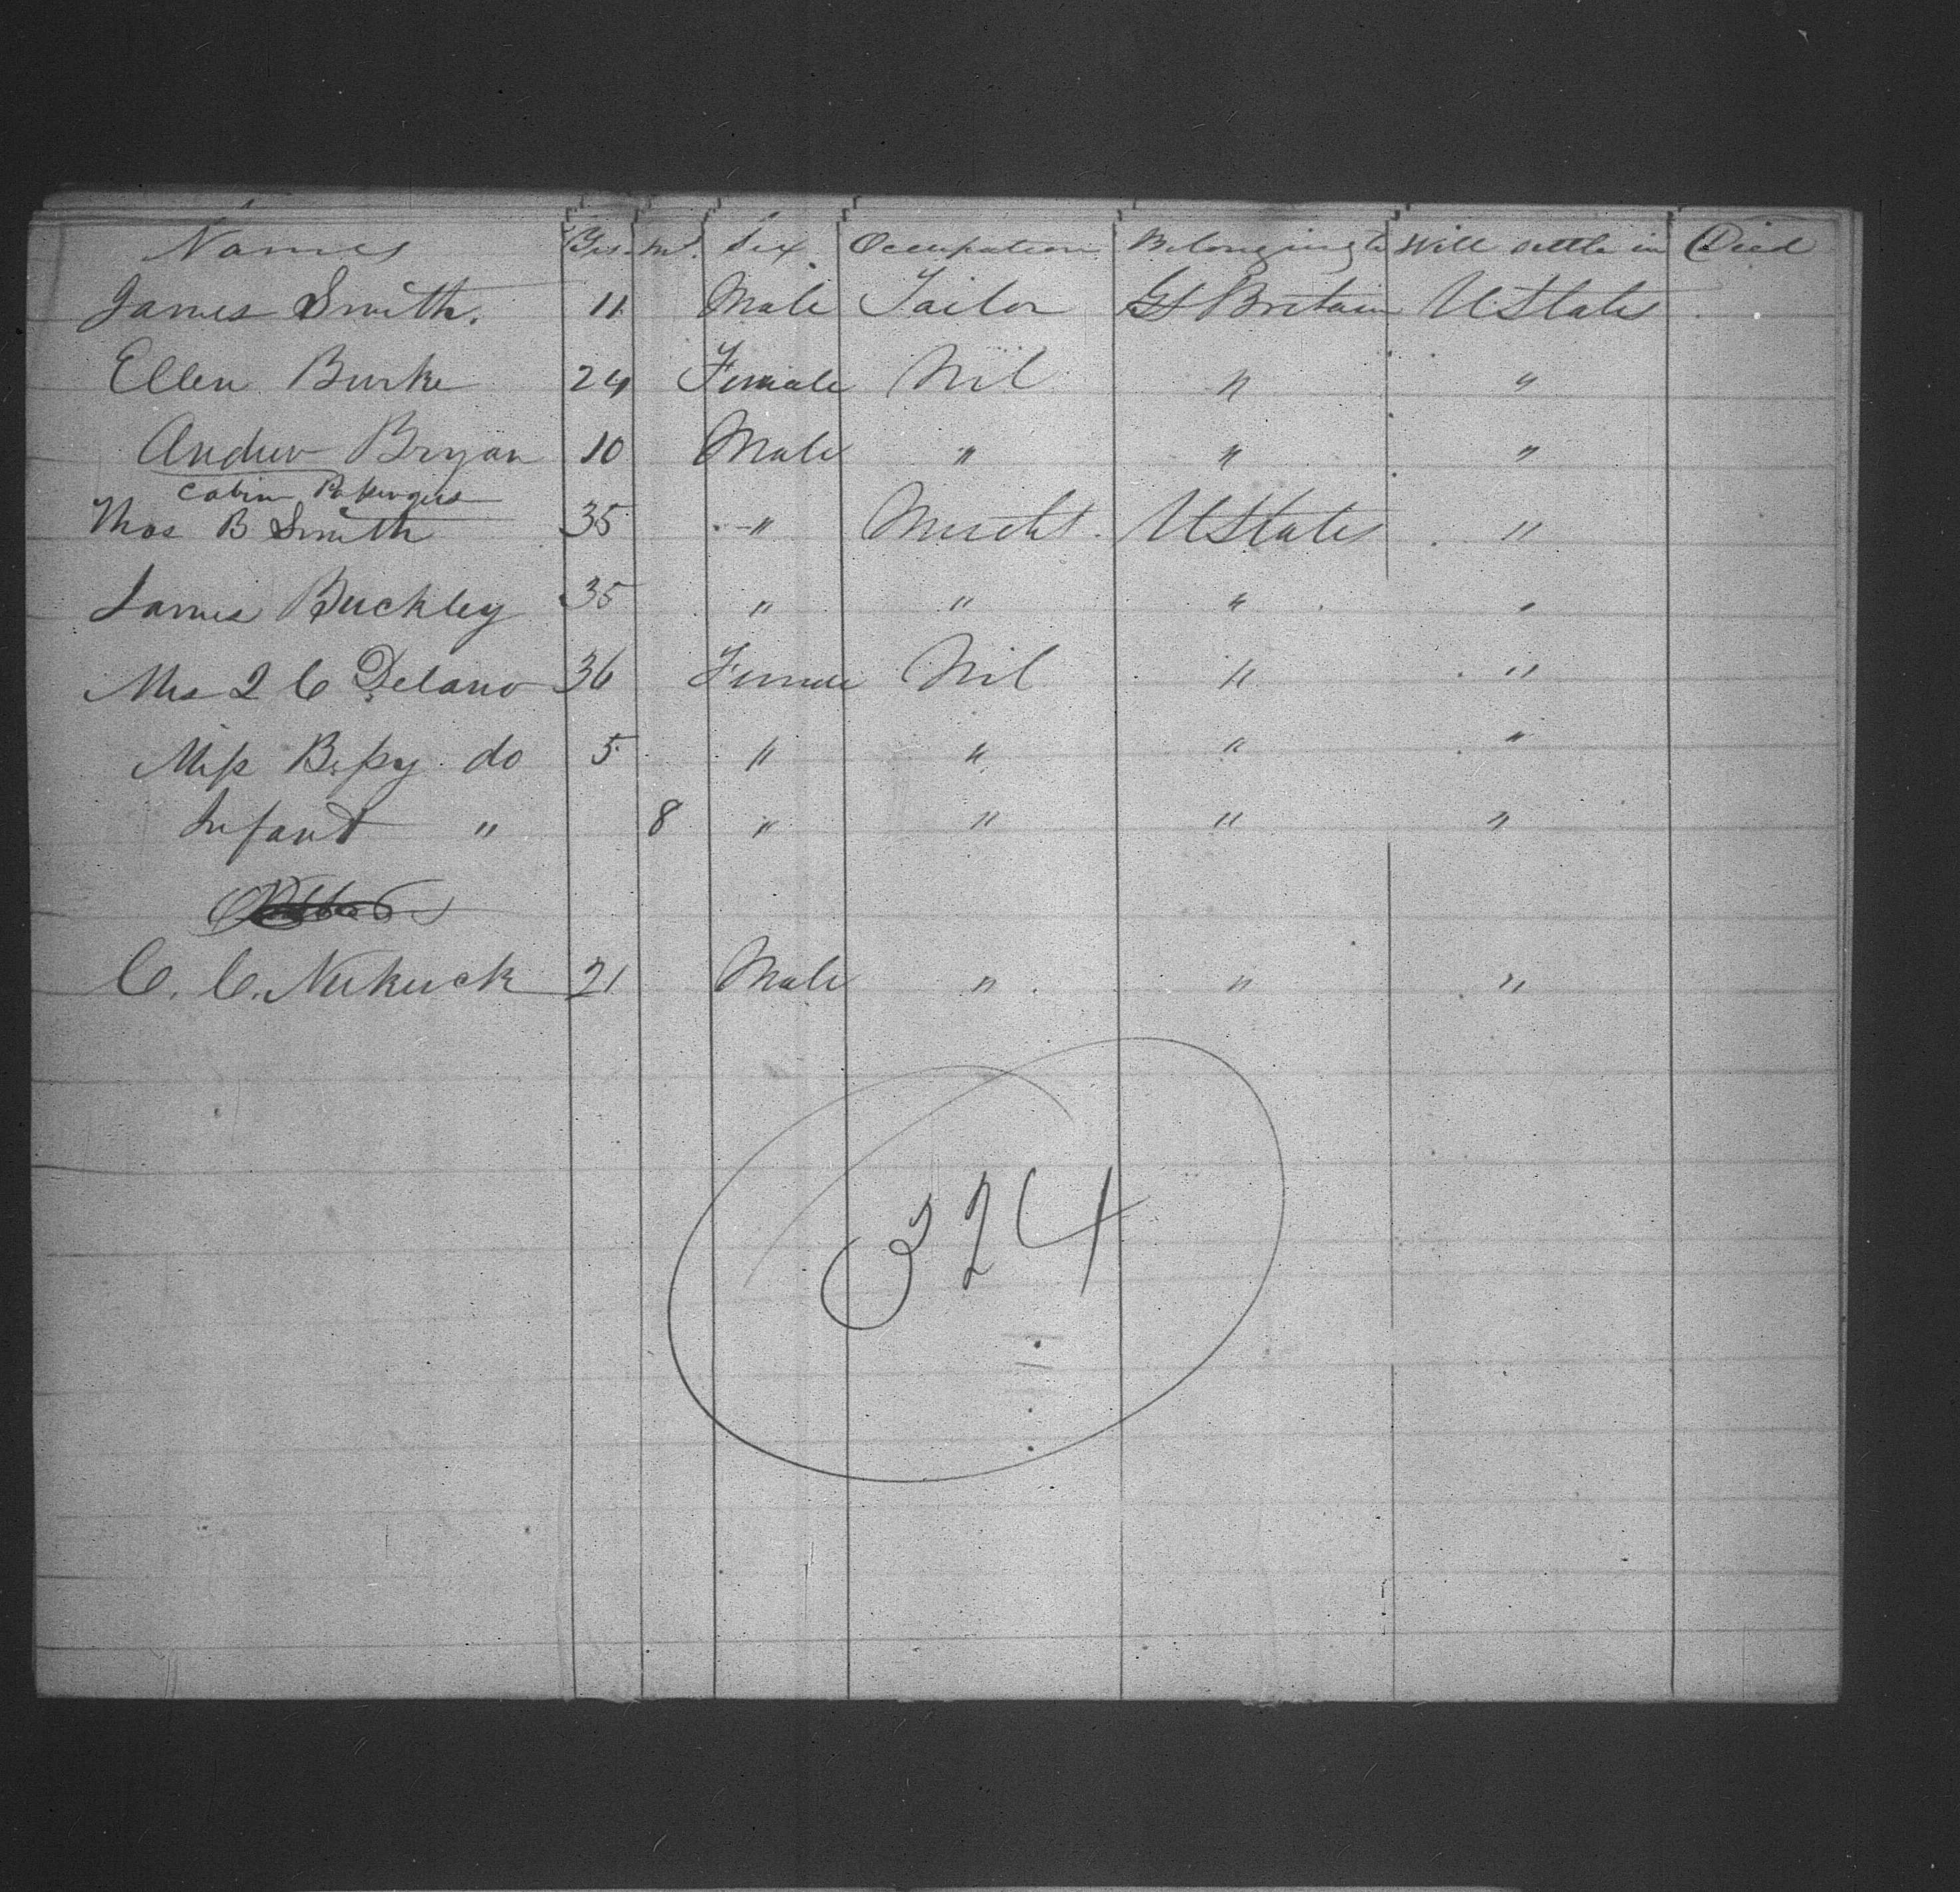 Names Yrs. Ms. Sex Occupation Belonging to Will settle in Died
James Smith. 11 Male Tailor Gt Britain U States
Ellen Burke 24 Female Nil " "
Andrew Bryan 10 Male " " "
Cabin Passengers
Thos B Smith 35 " Mercht. U States "
James Buckley 35 " " " "
Mrs C Delano 36 Female Nil " "
Miss Bessy do 5 " " " "
Infant " 8 " " " "
C. C. 21 Male " " "
324